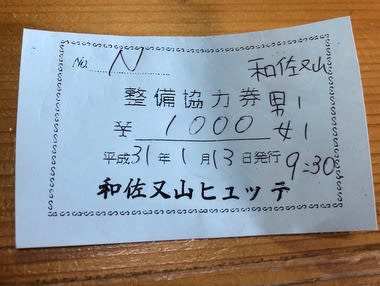 No. N 和佐又山
整備協力券 男1
¥ 1000 女1
平成31年1月13日発行 9-30
和佐又山ヒュッテ